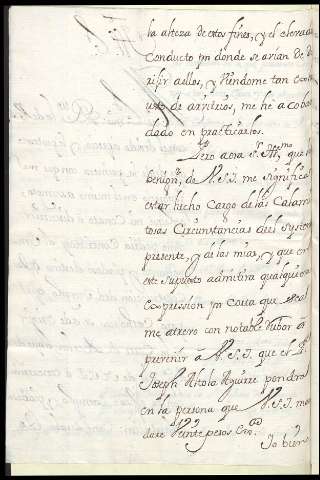 la alteza de estos fines, y el elevado
conducto pr donde se avian de di
rijir a ellos, y viendome tan co
de arvitrios, me hé acobar
dado en practicarlos.
Pero aora Sr. Illmo, que la
benignd. de V.S.I. me significa
estar hecho Cargo de las Calami
tosas Circunstancias del Systema
presente, y de las mias, y que en
este supuesto admitirá qualquiera
expression pr corta que sea
me atrevo con notable Rubor á
prevenir á V.S.I. que el
Joseph Atola Aguirre pondra
en la persona que V.S.I. man
dare Veinte pesos
Yo bien